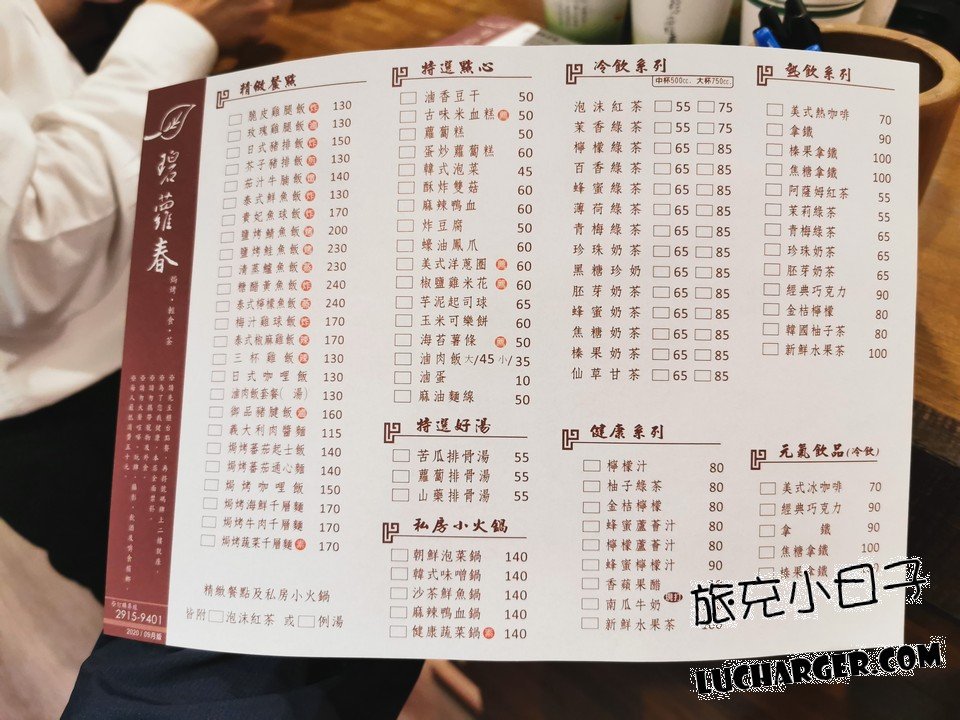 碧蘿春
焗烤・輕食・茶
2915-9401
2020 | 09月版
精緻餐點
脆皮雞腿飯 炸 130
玫瑰雞腿飯 滷 130
日式豬排飯 炸 150
芥子豬排飯 煎 130
茄汁牛腩飯 燴 140
泰式鮮魚飯 炸 130
黃妃魚球飯 炸 170
鹽烤鯖魚飯 烤 200
鹽烤鮭魚飯 烤 230
清蒸鱸魚飯 蒸 230
糖醋黃魚飯 炸 240
泰式檸檬魚飯 蒸 240
梅汁雞球飯 炸 170
泰式椒麻雞飯 辣 170
三杯雞飯 辣 130
日式咖哩飯 130
滷肉飯套餐(湯) 130
御品豬腱飯 滷 160
義大利肉醬麵 115
焗烤蕃茄起士飯 140
焗烤蕃茄通心麵 140
焗烤咖哩飯 150
焗烤海鮮千層麵 170
焗烤牛肉千層麵 170
焗烤蔬菜千層麵 素 170
精緻餐點及私房小火鍋
皆附 泡沫紅茶 或 例湯
特選點心
滷香豆干 50
古味米血糕 50
蘿蔔糕 50
蛋炒蘿蔔糕 60
韓式泡菜 45
酥炸雙菇 60
麻辣鴨血 60
炸豆腐 50
蠔油鳳爪 60
美式洋蔥圈 60
椒鹽雞米花 60
芋泥起司球 65
玉米可樂餅 60
海苔薯條 50
滷肉飯 大/45 小/35
滷蛋 10
麻油麵線 50
特選好湯
苦瓜排骨湯 55
蘿蔔排骨湯 55
山藥排骨湯 55
私房小火鍋
朝鮮泡菜鍋 140
韓式味噌鍋 140
沙茶鮮魚鍋 140
麻辣鴨血鍋 140
健康蔬菜鍋 素 140
冷飲系列
中杯500cc. 大杯750cc.
泡沫紅茶 55 75
茉香綠茶 55 75
檸檬綠茶 65 85
百香綠茶 65 85
蜂蜜綠茶 65 85
薄荷綠茶 65 85
青梅綠茶 65 85
珍珠奶茶 65 85
黑糖珍奶 65 85
胚芽奶茶 65 85
蜂蜜奶茶 65 85
焦糖奶茶 65 85
榛果奶茶 65 85
仙草甘茶 65 85
健康系列
檸檬汁 80
柚子綠茶 80
金桔檸檬 80
蜂蜜蘆薈汁 80
檸檬蘆薈汁 80
蜂蜜檸檬汁 90
香蘋果醋
南瓜牛奶 現打
新鮮水果茶 100
熱飲系列
美式熱咖啡 70
拿鐵 90
榛果拿鐵 100
焦糖拿鐵 100
阿薩姆紅茶 55
茉莉綠茶 55
青梅綠茶 65
珍珠奶茶 65
胚芽奶茶 65
經典巧克力 90
金桔檸檬 80
韓國柚子茶 80
新鮮水果茶 100
元氣飲品(冷飲)
美式冰咖啡 70
經典巧克力 90
拿鐵 90
焦糖拿鐵 100
榛果拿鐵
旅充小日子
LUCHARGER.COM